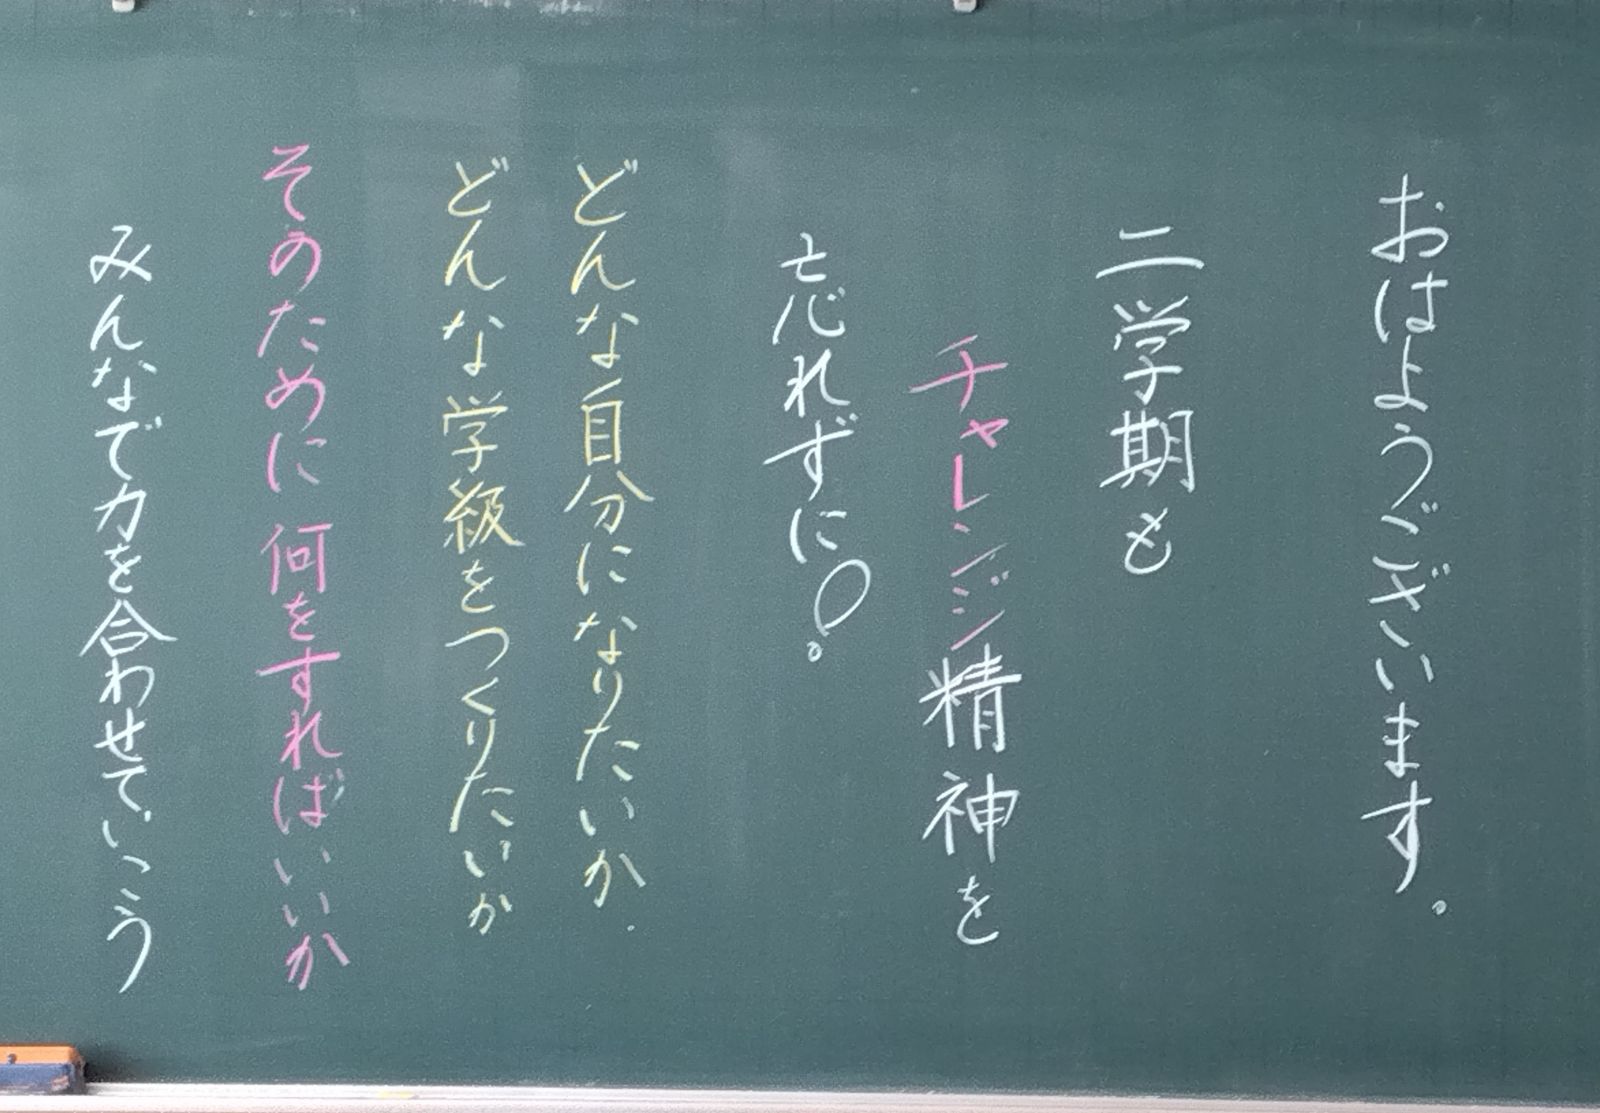 おはようございます。
二学期も
チャレンジ精神を
忘れずに!
どんな自分になりたいか.
どんな学級をつくりたいか
そのために何をすればいいか
みんなで力を合わせていこう